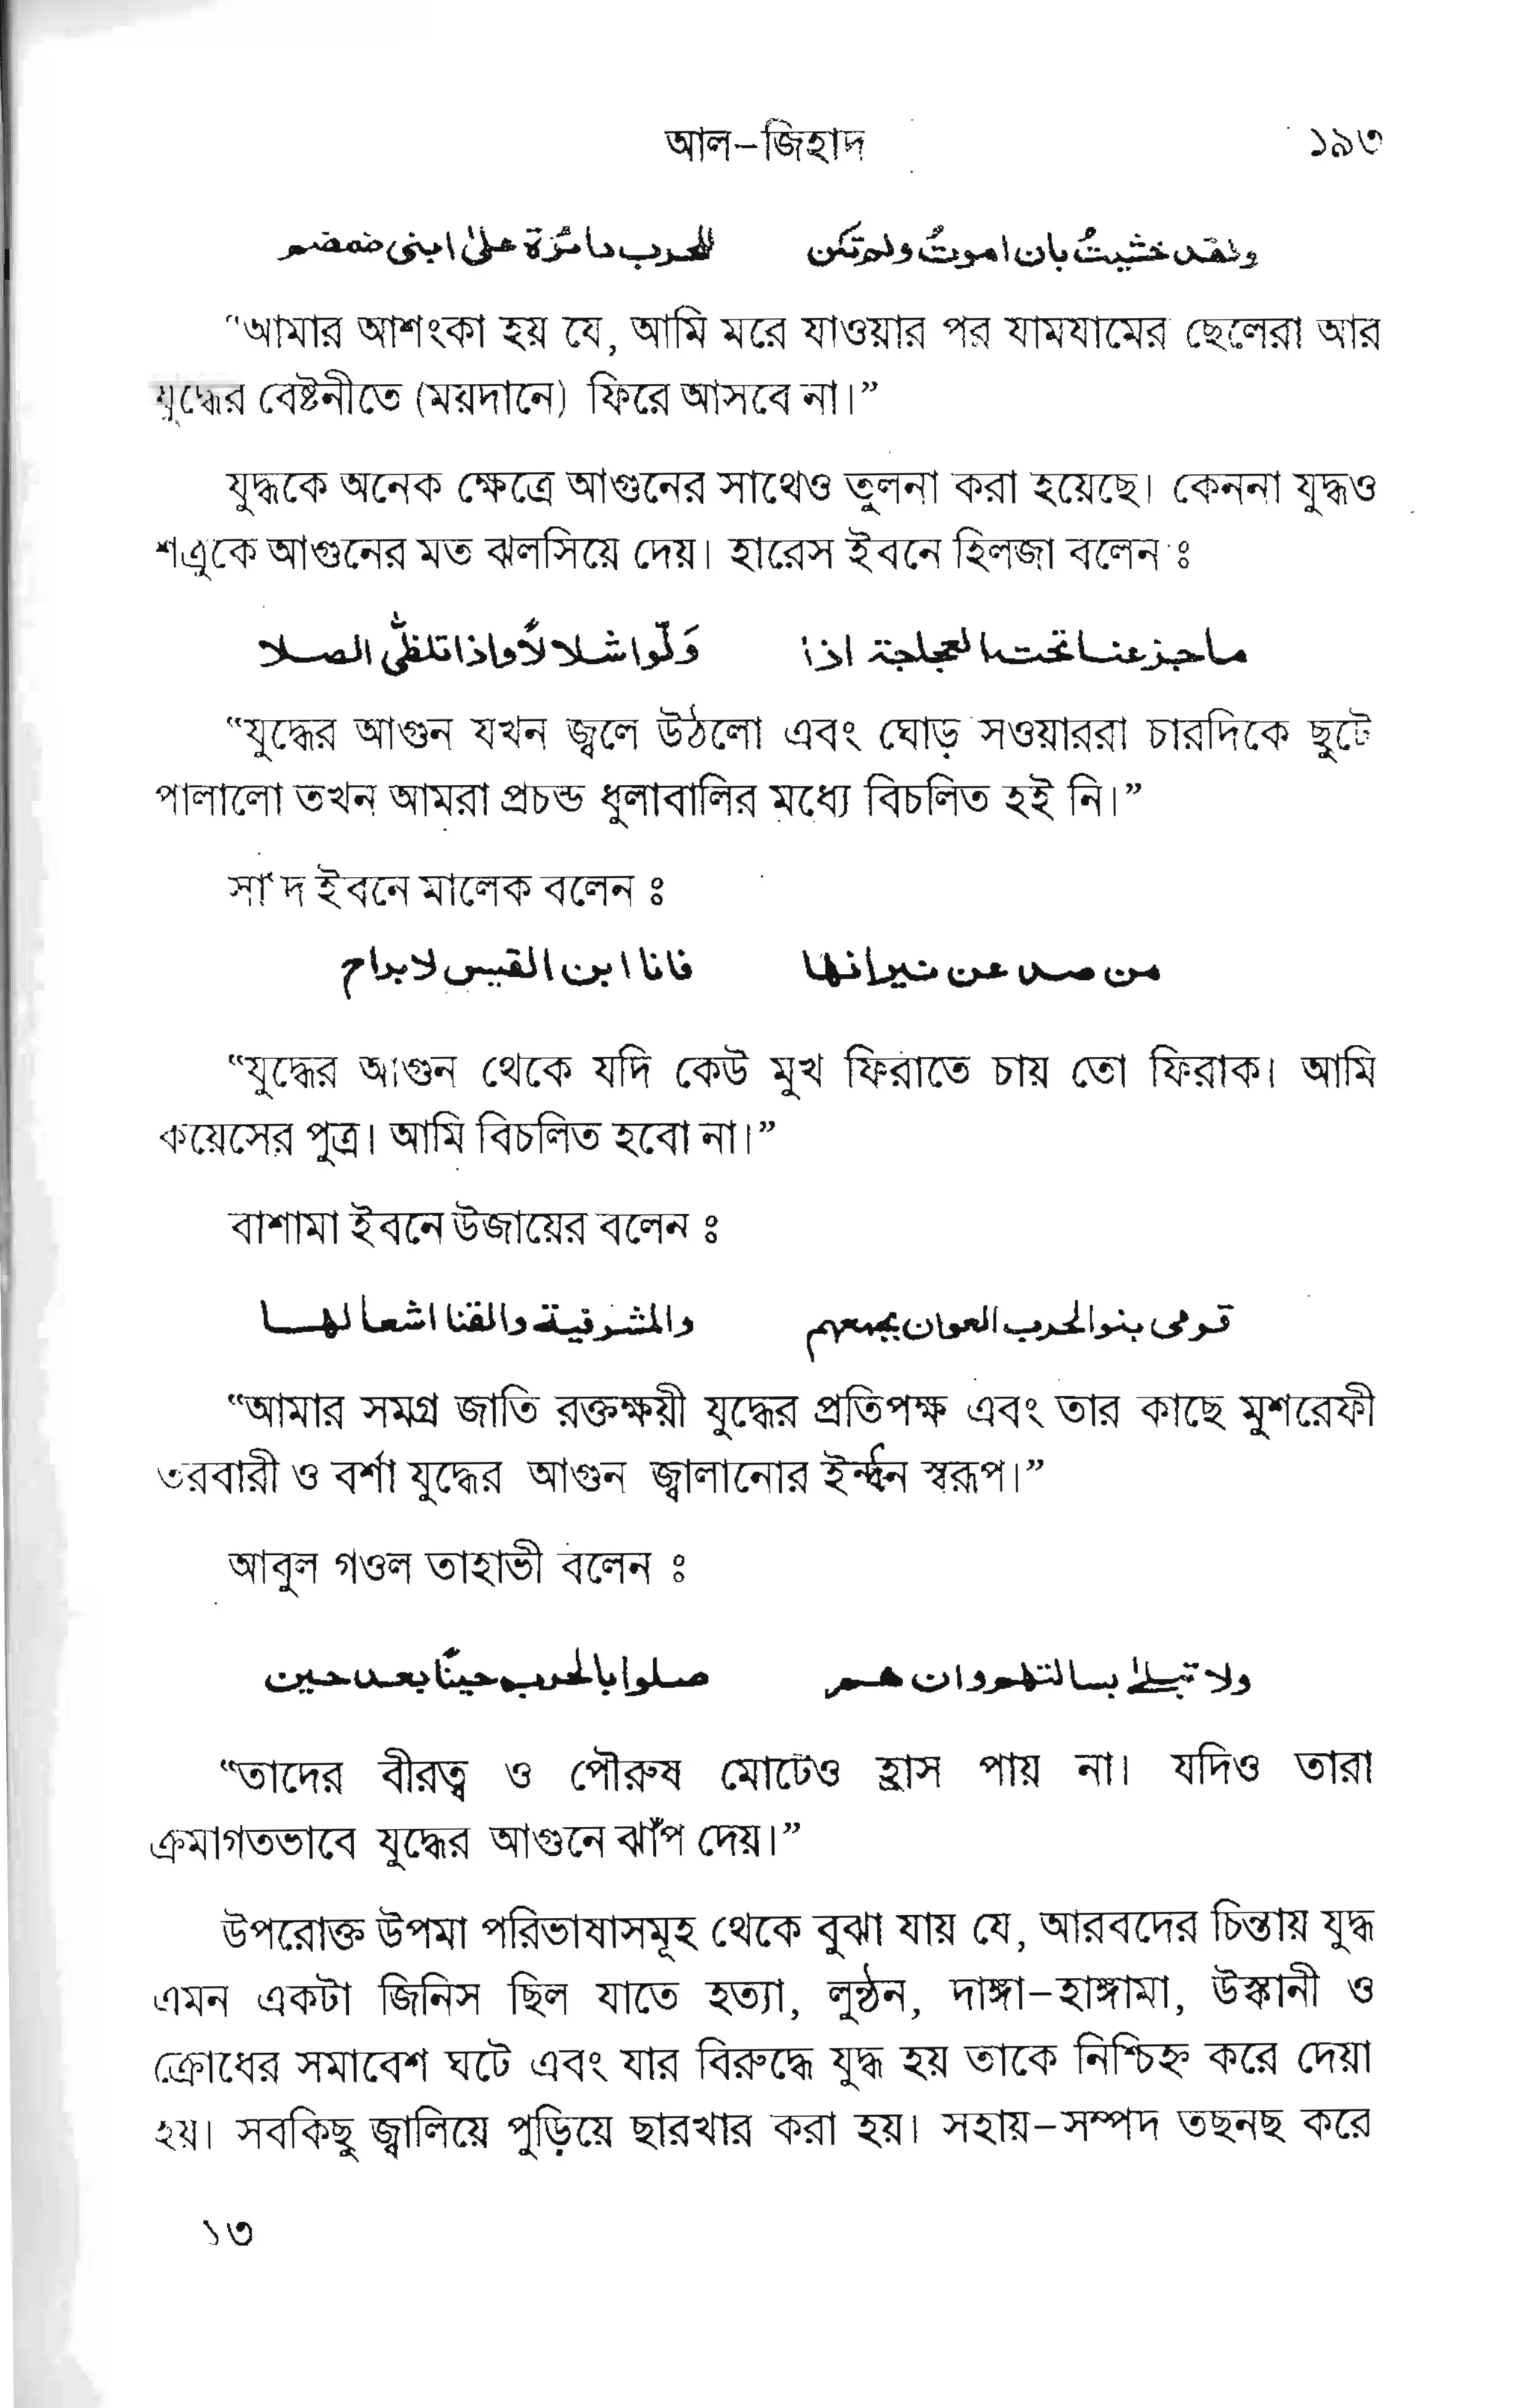 আল-জিহাদ ১৯৩
ولقد خشيتُ بان اموتُ ولم تكن للحرب دائرة على ابنى ضمضم
"আমার আশংকা হয় যে, আমি মরে যাওয়ার পর যামযামের ছেলেরা আর
যুদ্ধের বেষ্টনীতে (ময়দানে) ফিরে আসবে না।"
যুদ্ধকে অনেক ক্ষেত্রে আগুনের সাথেও তুলনা করা হয়েছে। কেননা যুদ্ধও
শত্রুকে আগুনের মত ঝলসিয়ে দেয়। হারেস ইবনে হিলজা বলেন ঃ
ماجزعنا تحت العجاجة اذا وَلّوا شلالاً واذا تلظّى الصلا
"যুদ্ধের আগুন যখন জ্বলে উঠলো এবং ঘোড় সওয়াররা চারদিকে ছুটে
পালালো তখন আমরা প্রচন্ড ধুলাবালির মধ্যে বিচলিত হই নি।"
সা'দ ইবনে মালেক বলেন ঃ
من صد عن نيرانها فانا ابن القيس لا براح
"যুদ্ধের আগুন থেকে যদি কেউ মুখ ফিরাতে চায় তো ফিরাক। আমি
কয়েসের পুত্র। আমি বিচলিত হবো না।"
বাশামা ইবনে উজায়ের বলেন ঃ
قومى بنو الحرب العوان بجمعهم والمشرفية والقنا اشعالها
"আমার সমগ্র জাতি রক্তক্ষয়ী যুদ্ধের প্রতিপক্ষ এবং তার কাছে মুশরেফী
তরবারী ও বর্শা যুদ্ধের আগুন জ্বালানোর ইর্ন্ধন স্বরূপ।"
আবুল গওল তাহাভী বলেন ঃ
ولا تبلىٰ بسالتهم وان هم صلوا بالحرب حينًا بعد حين
"তাদের বীরত্ব ও পৌরুষ মোটেও হ্রাস পায় না। যদিও তারা
ক্রমাগতভাবে যুদ্ধের আগুনে ঝাঁপ দেয়।"
উপরোক্ত উপমা পরিভাষাসমূহ থেকে বুঝা যায় যে, আরবদের চিন্তায় যুদ্ধ
এমন একটা জিনিস ছিল যাতে হত্যা, লুন্ঠন, দাঙ্গা-হাঙ্গামা, উস্কানী ও
ক্রোধের সমাবেশ ঘটে এবং যার বিরুদ্ধে যুদ্ধ হয় তাকে নিশ্চিহ্ন করে দেয়া
হয়। সবকিছু জ্বালিয়ে পুড়িয়ে ছারখার করা হয়। সহায়-সম্পদ তছনছ করে
১৩